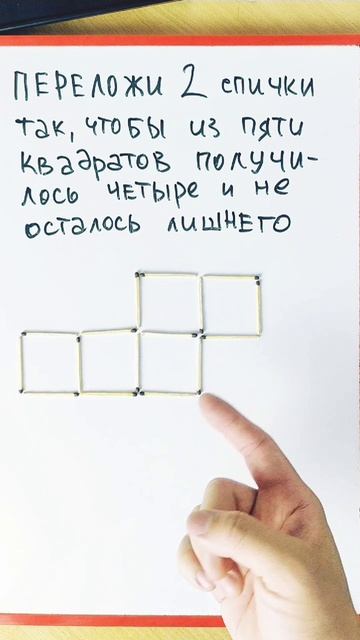 ПЕРЕЛОЖИ 2 спички
так, чтобы из пяти
квадратов получи-
лось четыре и не
осталось лишнего